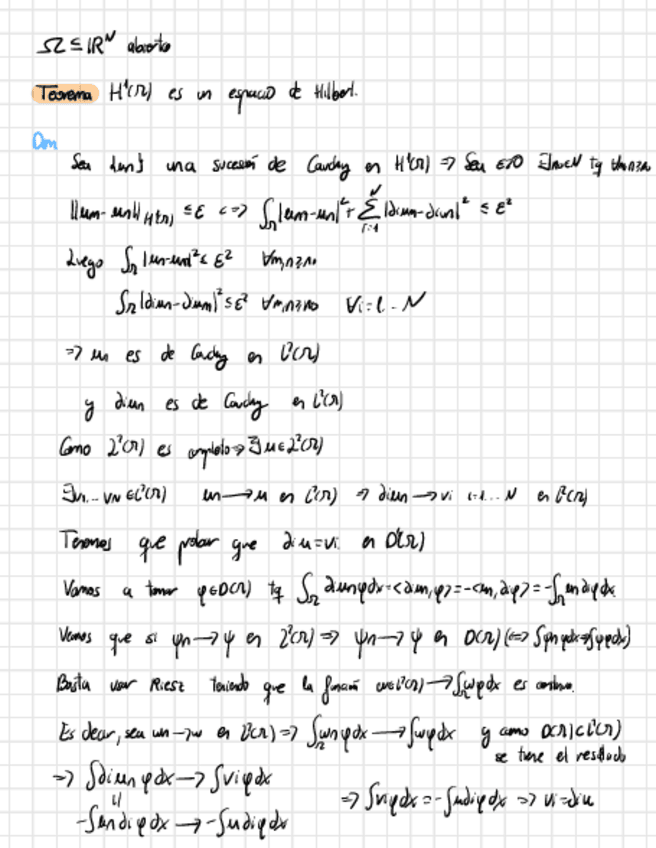 Ω ⊆ ℝ^N abierto
Teorema H¹(Ω) es un espacio de Hilbert.
Dm
Sea {un} una sucesión de Cauchy en H¹(Ω) => Sea ε>0 ∃n₀∈N tq ∀m,n≥n₀
||um-un||_H¹(Ω) ≤ ε <=> ∫_Ω |um-un|² + Σ_{i=1}^N |∂ium-∂iun|² ≤ ε²
Luego ∫_Ω |un-um|² ≤ ε² ∀m,n≥n₀
∫_Ω |∂iun-∂ium|² ≤ ε² ∀m,n≥n₀ ∀i=1..N
=> un es de Cauchy en L²(Ω)
y ∂iun es de Cauchy en L²(Ω)
Como L²(Ω) es completo => ∃u∈L²(Ω)
∃v1...vN ∈ L²(Ω) un → u en L²(Ω) => ∂iun → vi i=1...N en L²(Ω)
Tenemos que probar que ∂iu=vi en D'(Ω)
Vamos a tomar φ∈D(Ω) tq ∫_Ω ∂iunφdx=<∂iun,φ>=-<un,∂iφ>=-∫_Ω un∂iφdx
Vemos que si ψn → ψ en L²(Ω) => ψn → ψ en D(Ω) (<=> ∫ψnφdx→∫ψφdx)
Basta usar Riesz teniendo que la función w∈L²(Ω) → ∫_Ω wφdx es continua.
Es decir, sea wn → w en L²(Ω) => ∫_Ω wnφdx → ∫wφdx y como D(Ω)⊂L²(Ω)
se tiene el resultado
=> ∫∂iunφdx → ∫viφdx
=> ∫viφdx = -∫u∂iφdx => vi=∂iu
-∫un∂iφdx → -∫u∂iφdx